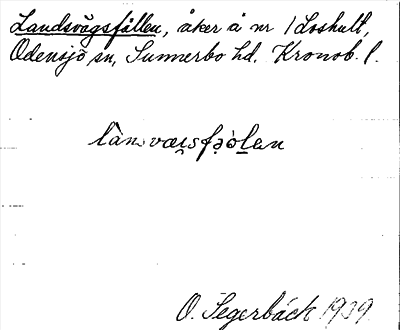 Landsvägsfållen, åker å nr 1 Loshult,
Odensjö sn, Sunnerbo hd. Kronob. l.
O. Segerbäck 1939.